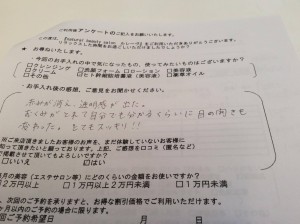 ご利用後アンケートのご記入をお願いいたします。
この度は、natural beauty salon
リラックスした時間をお過ごしいただけましたでしょうか?
★ お尋ねいたします。
・今回のお手入れの中で気になったもの、使ってみたいものはございますか?
□クレンジング □洗顔フォーム □ローション □美容液
□クリーム □ヒト幹細胞培養液（美容液） □薬草オイル
□その他
・お手入れ後の感想、ご意見をお聞かせください。
赤みが消え透明感が出た。
おくみがとれて自分でも分かるくらいに目の開きも
変わった。とてもスッキリ!!
ご来店頂きましたお客様のお声を、まだ体験していないお客様に
知って頂きたいと願っております。上記、ご感想を口コミ（匿名など）
掲載させて頂いてもよろしいですか?
□いいえ □はい
月の美容（エステサロン等）にどれくらいの金額をお使いですか?
2万円以上 □1万円以上2万円未満 □1万円未満
回のご予約を承りますと、お得な割引価格でご利用いただけます。
ヶ月以内のご予約の場合に限ります。
回ご予約希望日 月 日